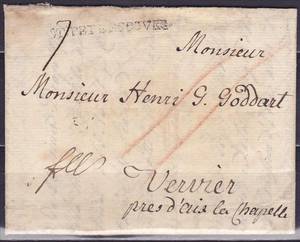 7
Monsieur
Monsieur Henri G. Goddart
Vervier
pres d'aix la Chapelle